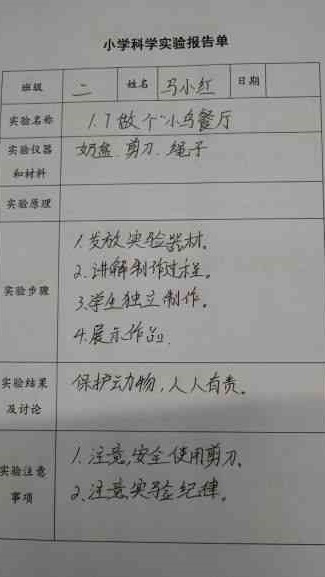 小学科学实验报告单
班级 二 姓名 马小红 日期
实验名称 1.7做个“小鸟餐厅
实验仪器和材料 奶盒、剪刀、绳子
实验原理
实验步骤
1.发放实验器材。
2.讲解制作过程。
3.学生独立制作。
4.展示作品.
实验结果及讨论 保护动物，人人有责。
实验注意事项
1.注意,安全使用剪刀。
2.注意实验纪律。